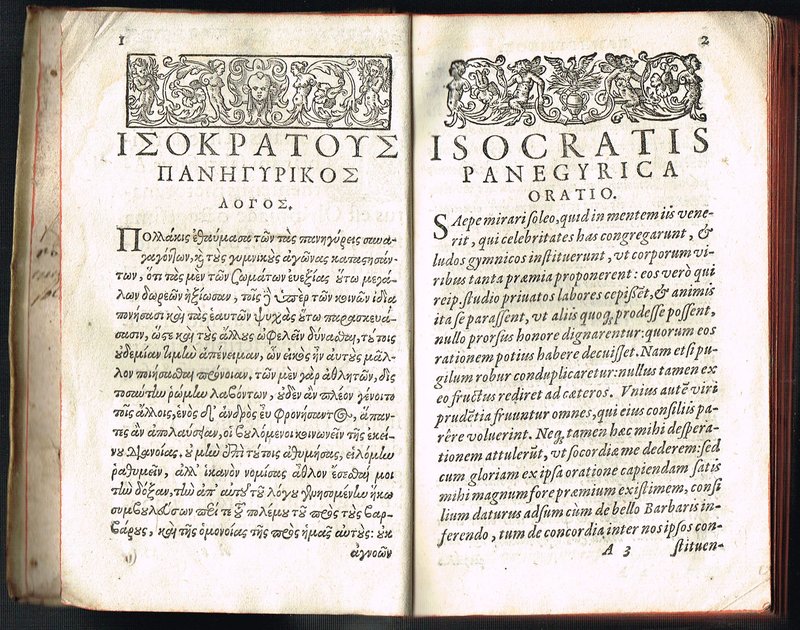 1
ΙΣΟΚΡΑΤΟΥΣ
ΠΑΝΗΓΥΡΙΚΟΣ
ΛΟΓΟΣ.
Πολλάκις ἐθαύμασα τῶν τὰς πανηγύρεις συνα-
γαγόντων, καὶ τοὺς γυμνικοὺς ἀγῶνας καταστησάν-
των, ὅτι τὰς μὲν τῶν σωμάτων εὐεξίας οὕτω μεγά-
λων δωρεῶν ἠξίωσαν, τοῖς δ' ὑπὲρ τῶν κοινῶν ἰδίᾳ
πονήσασι καὶ τὰς ἑαυτῶν ψυχὰς οὕτω παρασκευά-
σασιν, ὥστε καὶ τοὺς ἄλλους ὠφελεῖν δύνασθαι, τούτοις
οὐδεμίαν τιμὴν ἀπένειμαν, ὧν εἰκὸς ἦν αὐτοὺς μᾶλ-
λον ποιήσασθαι πρόνοιαν. τῶν μὲν γὰρ ἀθλητῶν, δὶς
τοσαύτην ῥώμην λαβόντων, οὐδὲν ἂν πλέον γένοιτο
τοῖς ἄλλοις, ἑνὸς δ' ἀνδρὸς εὖ φρονήσαντος, ἅπαν-
τες ἂν ἀπολαύσειαν, οἱ βουλόμενοι κοινωνεῖν τῆς ἐκεί-
νου διανοίας. οὐ μὴν ἐπὶ τούτοις ἀθυμήσας, εἱλόμην
ῥαθυμεῖν, ἀλλ' ἱκανὸν νομίσας ἆθλον ἔσεσθαί μοι
τὴν δόξαν, τὴν ἀπ' αὐτοῦ τοῦ λόγου γενησομένην ἥκω
συμβουλεύσων περί τε τοῦ πολέμου τοῦ πρὸς τοὺς βαρ-
βάρους, καὶ τῆς ὁμονοίας τῆς πρὸς ἡμᾶς αὐτούς: οὐκ
ἀγνοῶν
2
ISOCRATIS
PANEGYRICA
ORATIO.
SAepe mirari soleo, quid in mentem iis vene-
rit, qui celebritates has congregarunt, &
ludos gymnicos instituerunt, vt corporum vi-
ribus tanta præmia proponerent: eos verò qui
reip. studio priuatos labores cepißẽt, & animis
ita se parassent, vt aliis quoq; prodesse possent,
nullo prorsus honore dignarentur: quorum eos
rationem potius habere decuisset. Nam etsi pu-
gilum robur conduplicaretur: nullus tamen ex
eo fructus rediret ad cæteros. Vnius autẽ viri
prudẽtia fruuntur omnes, qui eius consiliis pa-
rêre voluerint. Neq; tamen hæc mihi despera-
tionem attulerũt, vt socordiæ me dederem: sed
cum gloriam ex ipsa oratione capiendam satis
mihi magnum fore præmium existimem, consi
lium daturus adsum cùm de bello Barbaris in-
ferendo, tum de concordia inter nos ipsos con-
A 3 stituen-